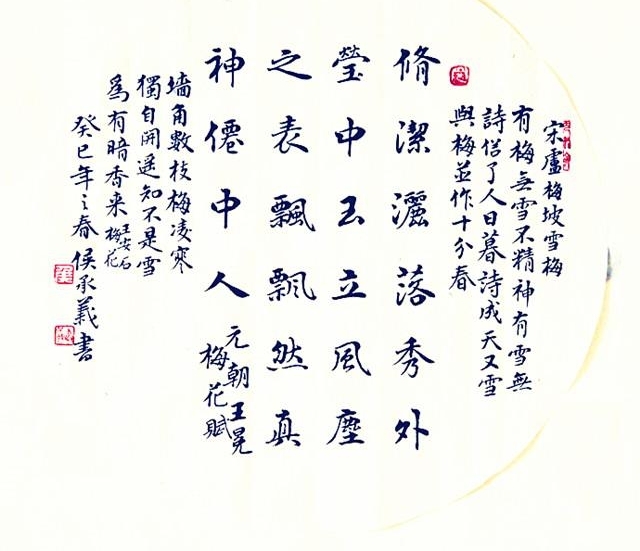 宋盧梅坡雪梅
有梅無雪不精神有雪無
詩俗了人日暮詩成天又雪
與梅並作十分春
脩潔灑落秀外
瑩中玉立風塵
之表飄飄然真
神僊中人
元朝王冕
梅花賦
墙角數枝梅凌寒
獨自開遥知不是雪
爲有暗香来
王安石
梅花
癸巳年之春侯承義書